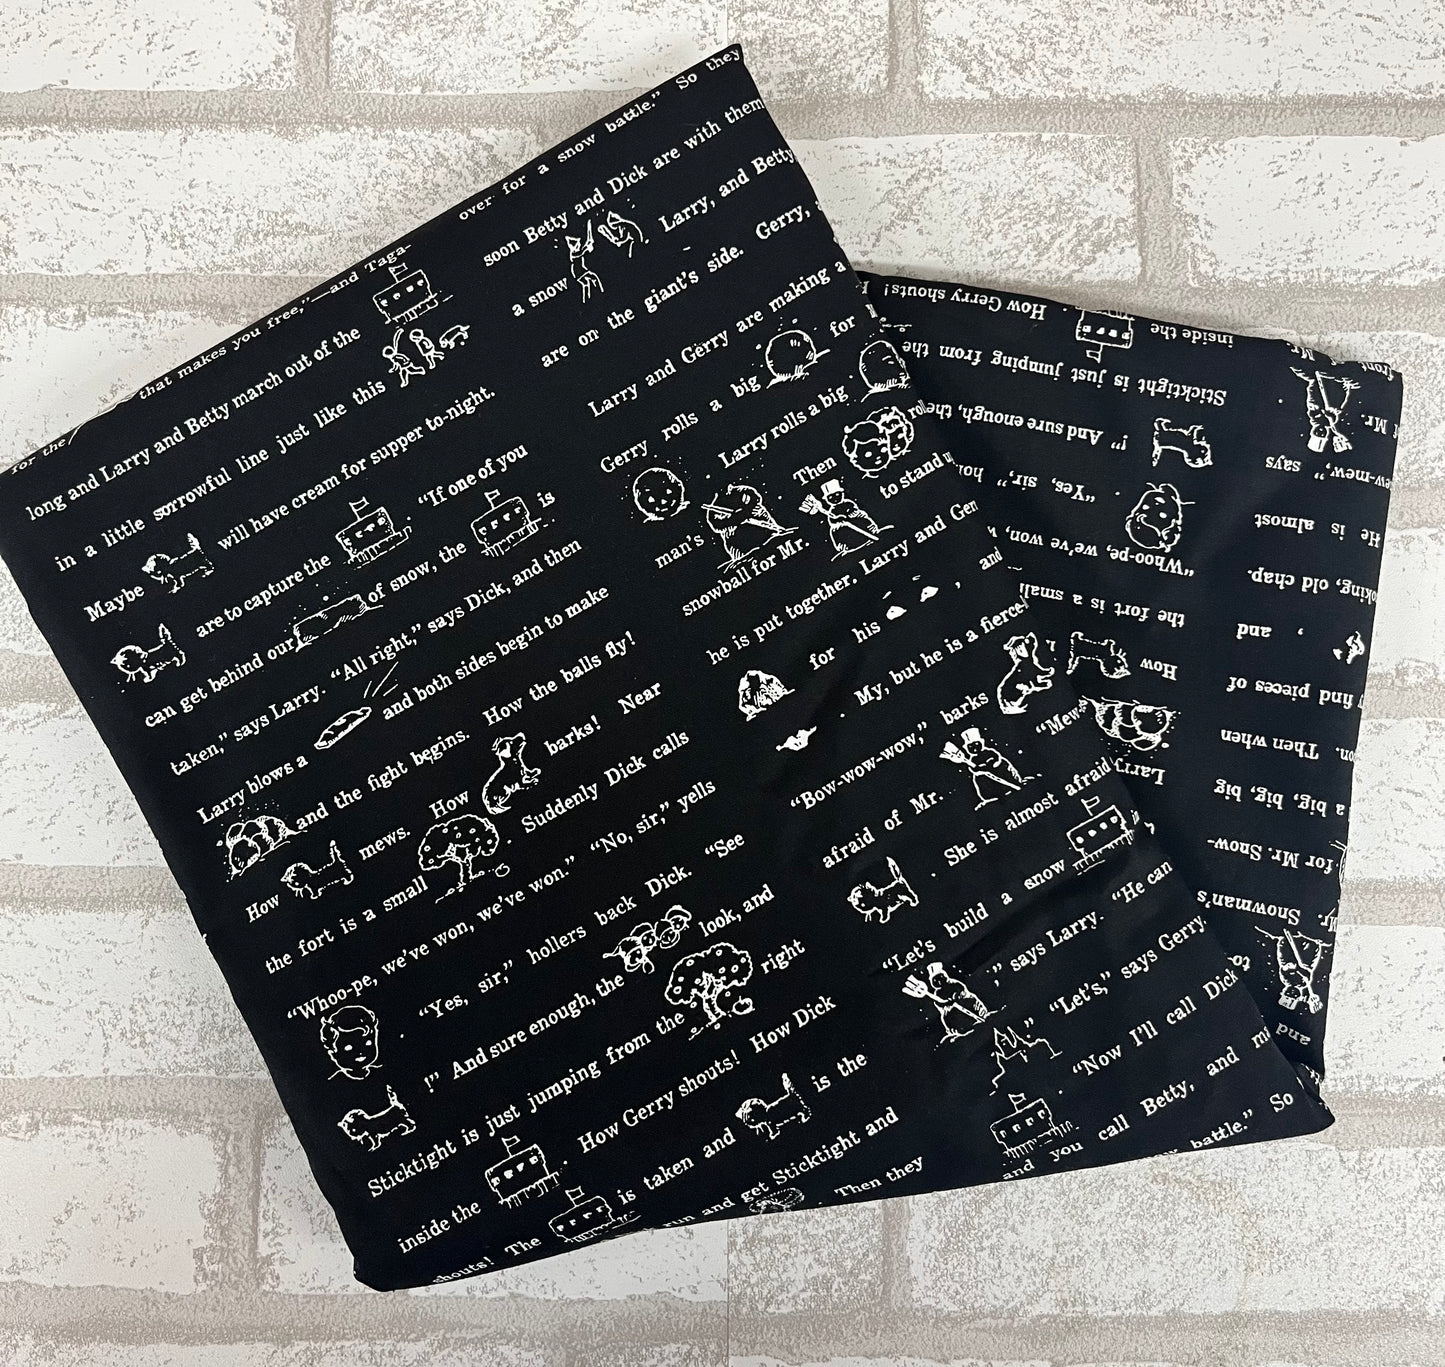 for the
that makes you free,"—and Taga-
long and Larry and Betty march out of the
in a little sorrowful line just like this
Maybe will have cream for supper to-night.
are to capture the . "If one of you
can get behind our of snow, the is
taken," says Larry. "All right," says Dick, and then
Larry blows a and both sides begin to make
and the fight begins. How the balls fly!
How mews. How barks! Near
the fort is a small . Suddenly Dick calls
"Whoo-pe, we've won, we've won." "No, sir," yells
. "Yes, sir," hollers back Dick. "See
!" And sure enough, the look, and
Sticktight is just jumping from the right
inside the . How Gerry shouts! How Dick
shouts! The is taken and is the
run and get Sticktight and
. Then they
over for a snow battle." So they
soon Betty and Dick are with them
a snow Larry, and Betty
are on the giant's side. Gerry,
Larry and Gerry are making a
Gerry rolls a big for
. Larry rolls a big
man's . Then
snowball for Mr. to stand
he is put together. Larry and
for his , and
. My, but he is a fierce
"Bow-wow-wow," barks
afraid of Mr. "Mew
. She is almost afraid
"Let's build a snow
," says Larry. "He can
" "Let's," says Gerry.
"Now I'll call Dick
and you call Betty, and
battle." So
How Gerry shouts!
inside the
Sticktight is just jumping from the
!" And sure enough, the
"Yes, sir,"
"Whoo-pe, we've won,
the fort is a small
How
Larry
Mr.
Mr.
says
He is almost
old chap.
, and
find pieces of
Then when
a big, big, big
for Mr. Snow-
Snowman's
to
and